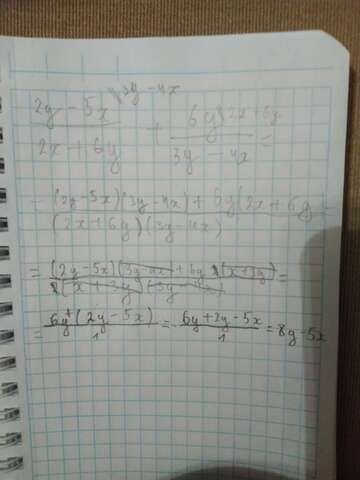 2y - 5x \3y - 4x + 6y \2x + 6y =
2x + 6y 3y - 4x
= (2y-5x)(3y-4x) + 6y(2x+6y)
(2x+6y)(3y-4x)
= (2y-5x)(3y-4x) + 6y 2(x+3y) =
2(x+3y)(3y-4x)
= 6y+(2y-5x) = 6y+2y-5x = 8y-5x
1 1